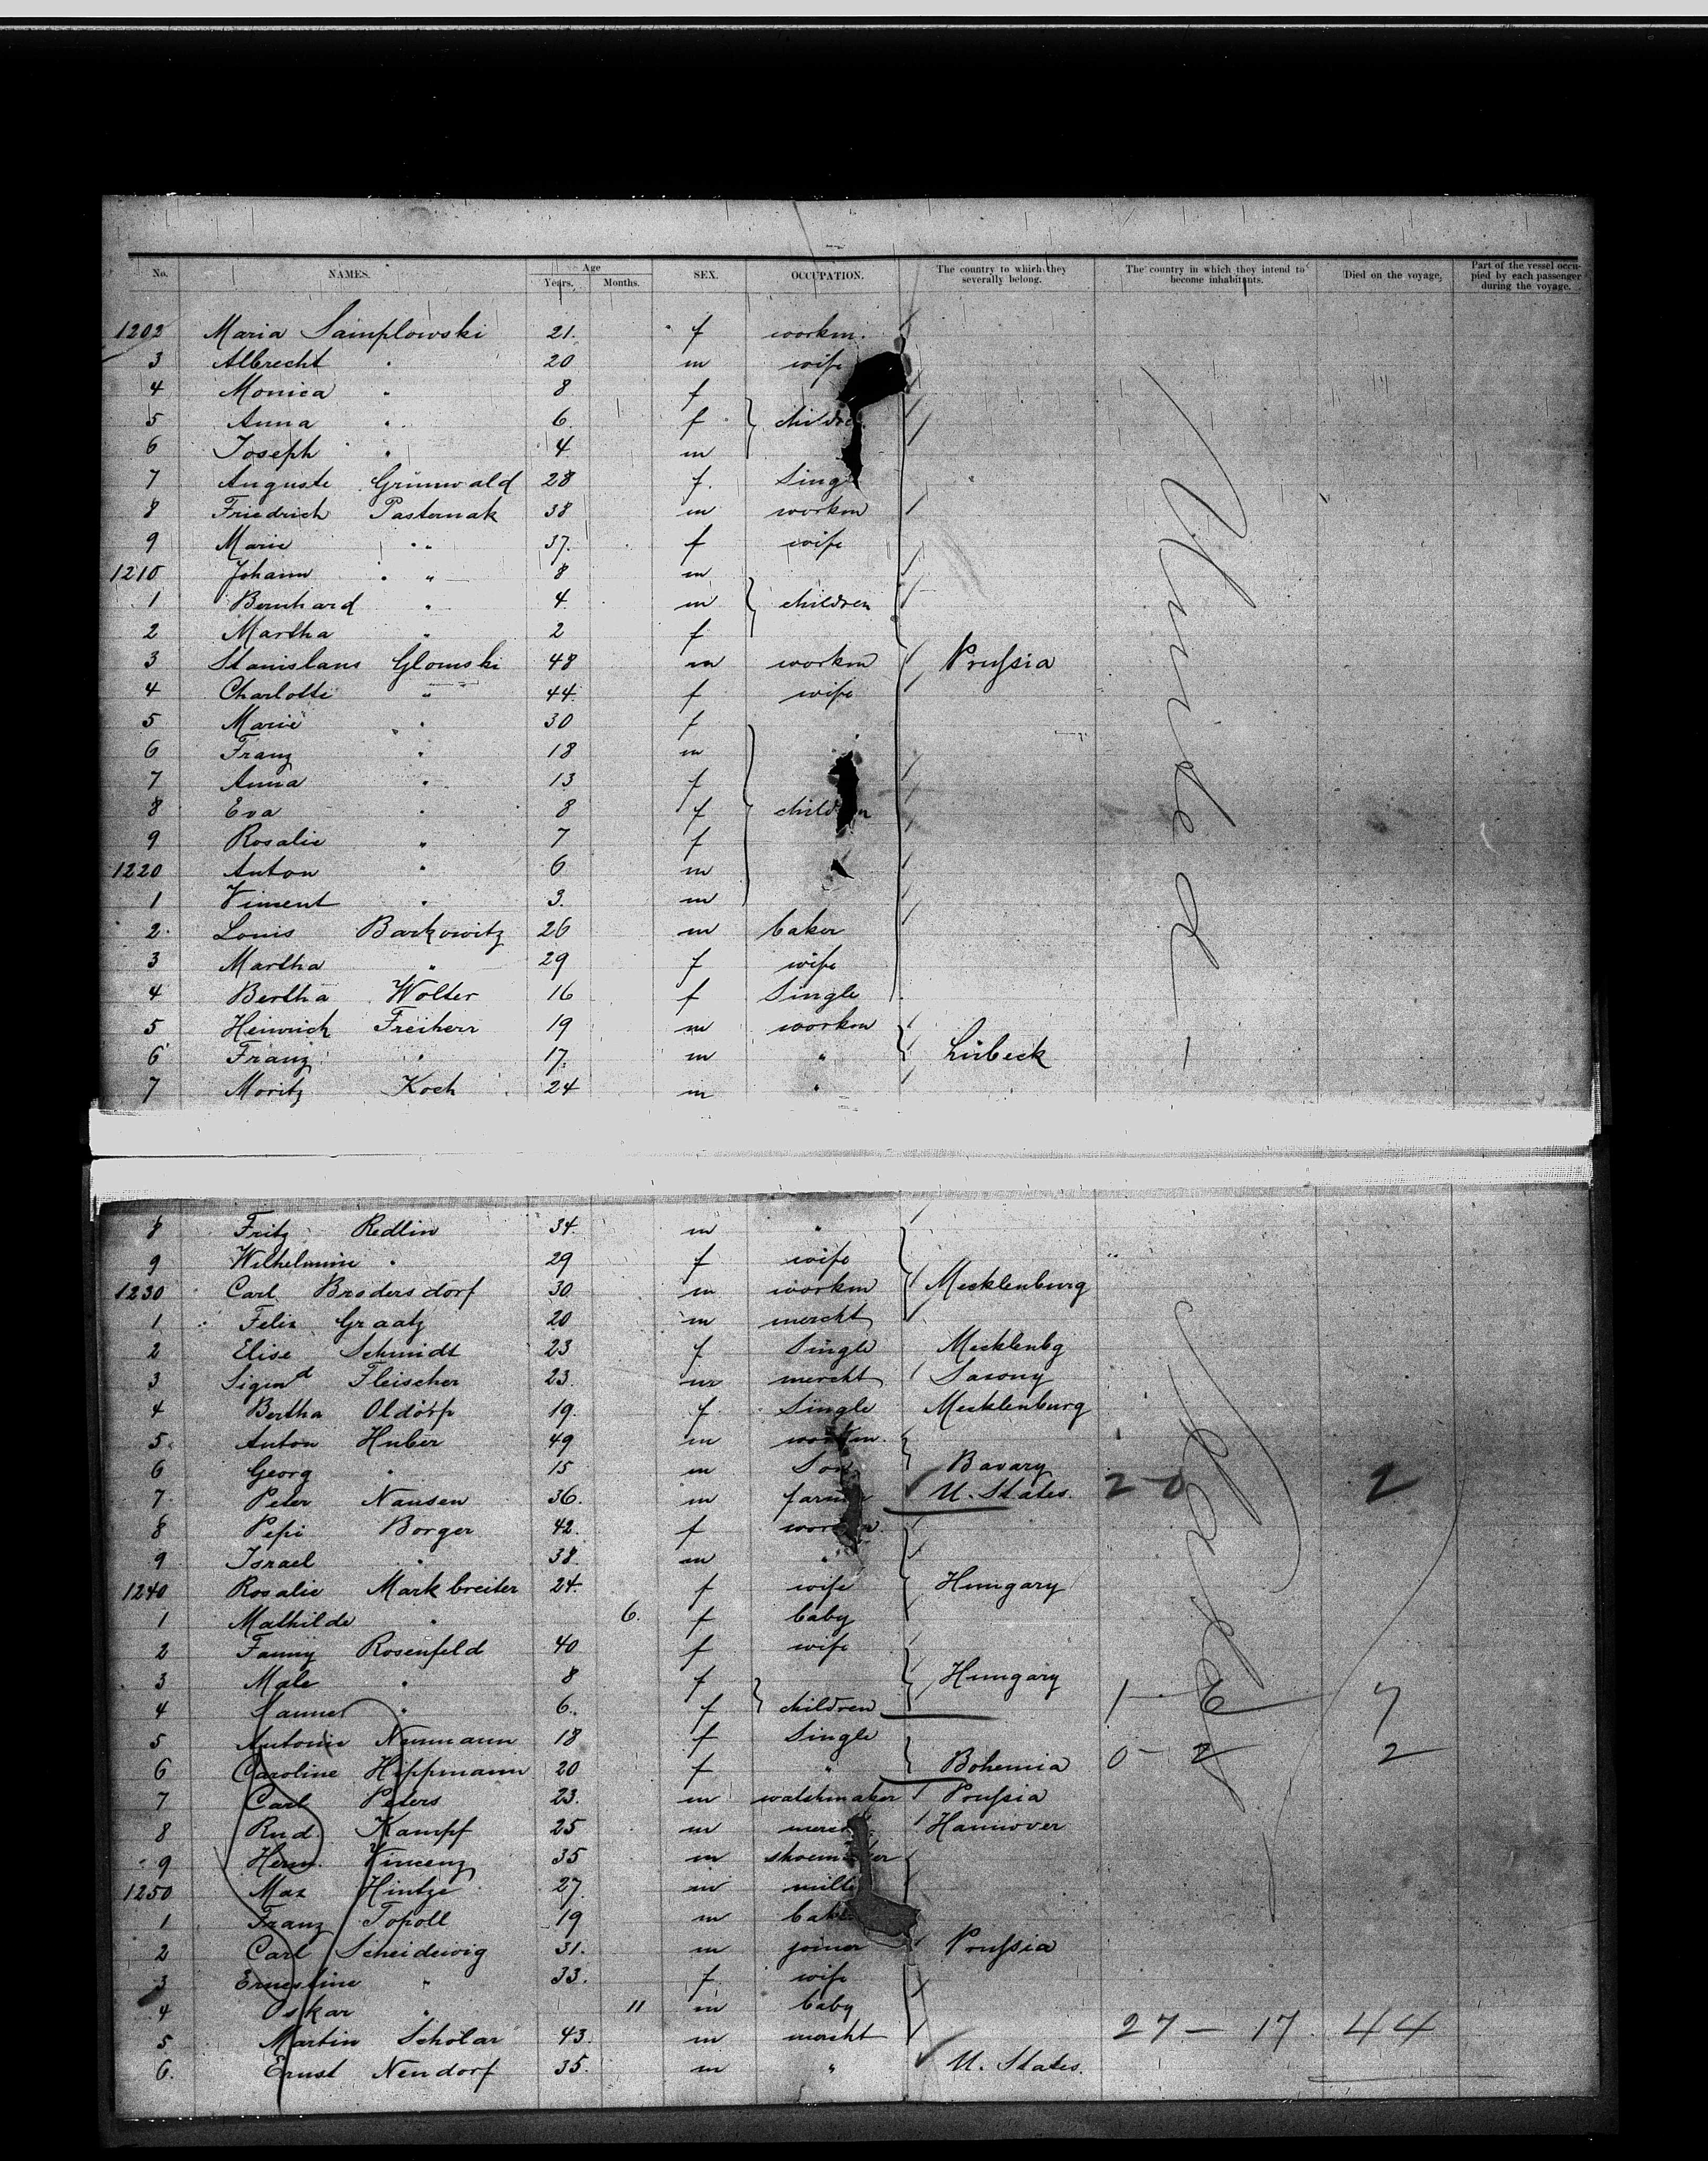 No. NAMES. Age Years. Months. SEX. OCCUPATION. The country to which they severally belong. The country in which they intend to become inhabitants. Died on the voyage, Part of the vessel occupied by each passenger during the voyage.
1202 Maria Samplowski 21. f workm.
3 Albrecht " 20 m wife
4 Monica " 8 f
5 Anna " 6 f children
6 Joseph " 4 m
7 Auguste Grünwald 28 f. Single
8 Friedrich Pasternak 38 m workm
9 Marie " 37. f wife
1210 Johann " 8 m
1 Bernhard " 4 m children
2 Martha " 2 f
3 Stanislaus Glomski 48 m workm Prussia
4 Charlotte " 44. f wife
5 Marie " 30 f
6 Franz " 18 m
7 Anna " 13 f
8 Eva " 8 f children
9 Rosalie " 7 f
1220 Anton " 6 m
1 Vincent " 3. m
2 Louis Barkowitz 26 m baker
3 Martha " 29 f wife
4 Bertha Wolter 16 f Single
5 Heinrich Freiherr 19 m workm
6 Franz " 17. m " Lübeck
7 Moritz Koch 24 m "
8 Fritz Redlin 34. m "
9 Wilhelmine " 29 f wife
1230 Carl Brodersdorf 30. m workm Mecklenburg
1 Felix Graatz 20 m mercht
2 Elise Schmidt 23 f Single Mecklenbg
3 Sigmd Fleischer 23. m mercht Saxony
4 Bertha Oldörp 19. f Single Mecklenburg
5 Anton Huber 49 m workm.
6 Georg " 15 m Son Bavary
7 Peter Nausen 36. m farmer U. States. 2-0 2
8 Pepi Borger 42. f workm.
9 Israel " 38. m "
1240 Rosalie Markbreiter 24. f wife Hungary
1 Mathilde " 6. f baby
2 Fanny Rosenfeld 40 f wife
3 Male " 8 f Hungary
4 Hannel " 6. f children 1-6 7
5 Antonie Neumann 18 f Single
6 Caroline Hippmann 20 f " Bohemia 0-2 2
7 Carl Peters 23. m watchmaker Prussia
8 Rud. Kampf 25 m mercht Hannover
9 Herm. Vincenz 35 m shoemaker
1250 Max Hintze 27. m miller
1 Franz Topoll 19 m baker
2 Carl Scheidewig 31. m joiner Prussia
3 Ernestine " 33. f. wife
4 Oskar " 11 m baby
5 Martin Scholar 43. m mercht 27-17 44
6. Ernst Nendorf 35. m " U. States.